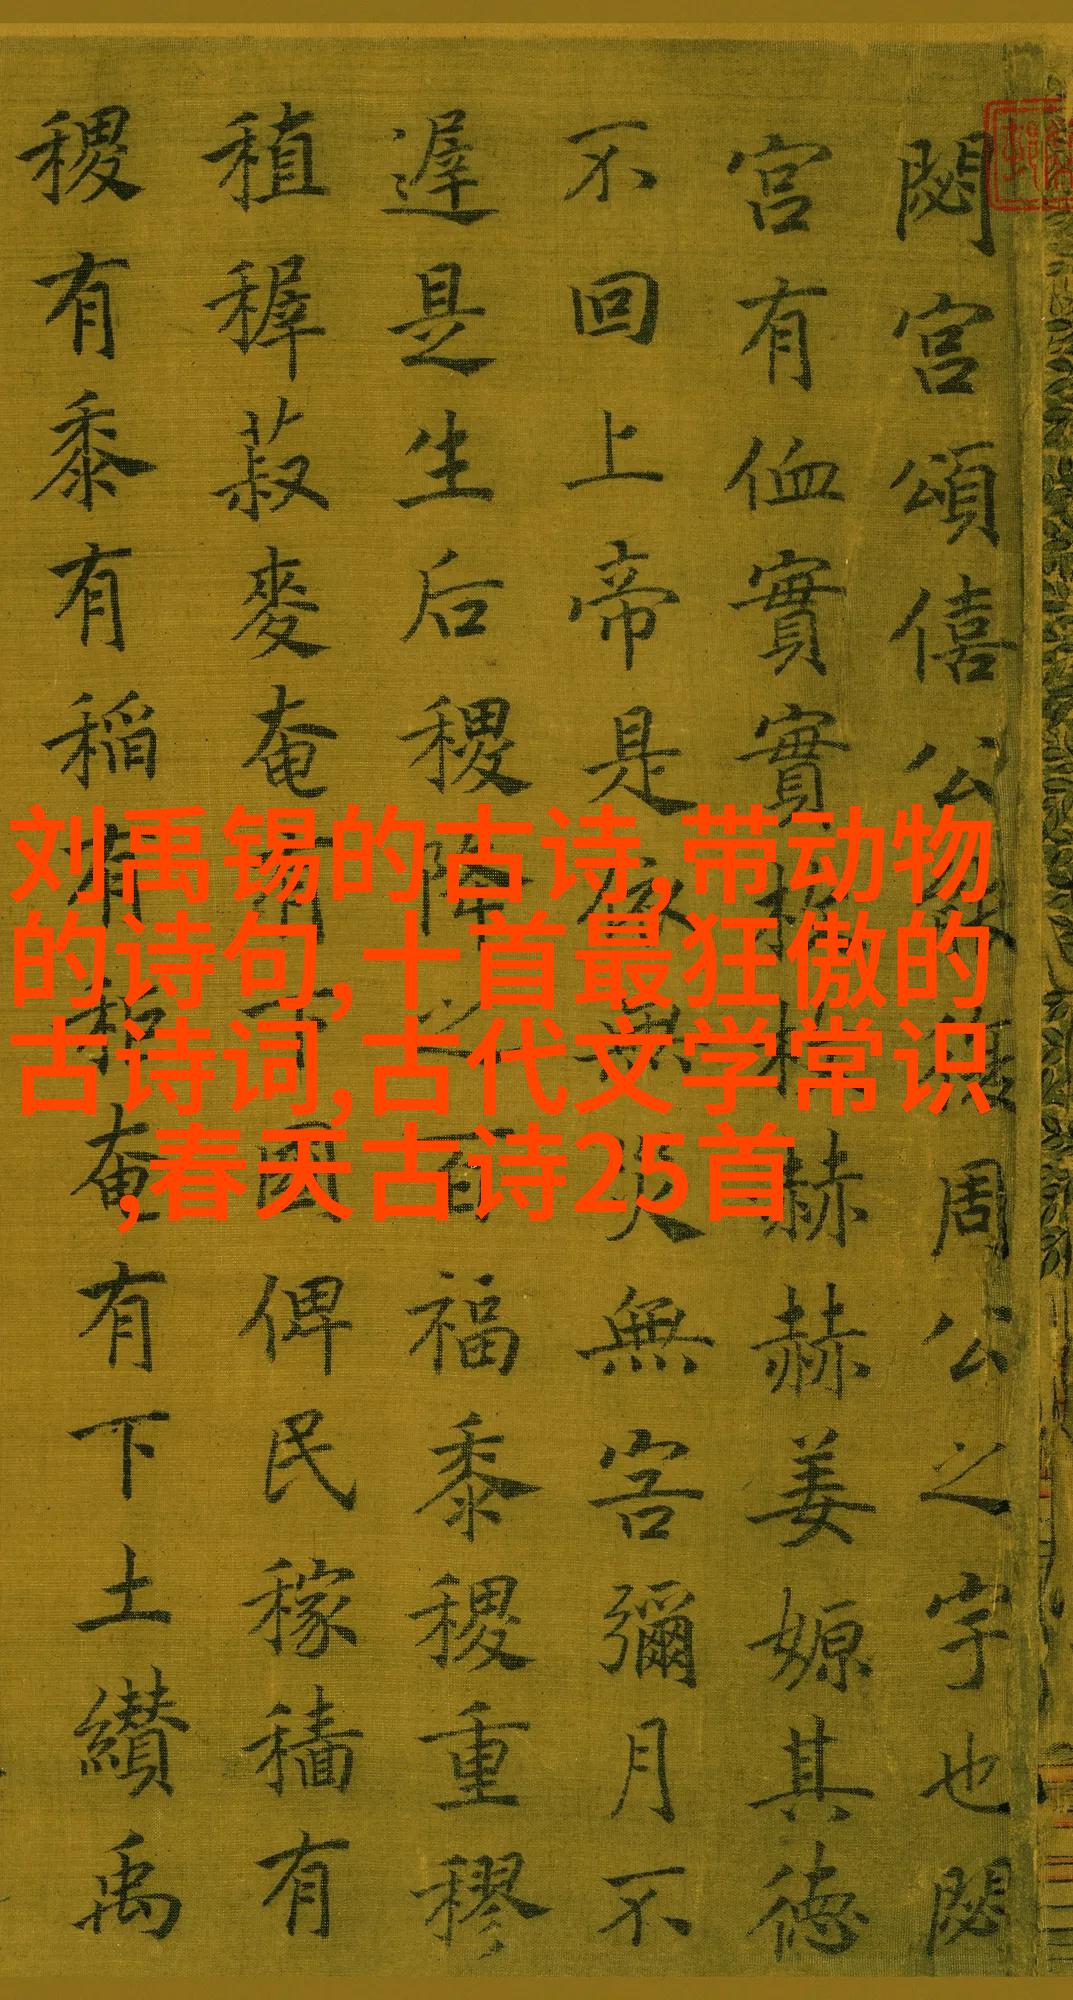 閟宮頌僖公能復周公之宇也閟
宮有侐實實枚枚赫赫姜嫄其德
不回上帝是依無災無害彌月不
遲是生后稷降之百福黍稷重穋
稙稺菽麥奄有下國俾民稼穡有
稷有黍有稻有秬奄有下土纘禹
刘禹锡的古诗,带动物
的诗句,十首最狂傲的
古诗词,古代文学常识
,春天古诗25首